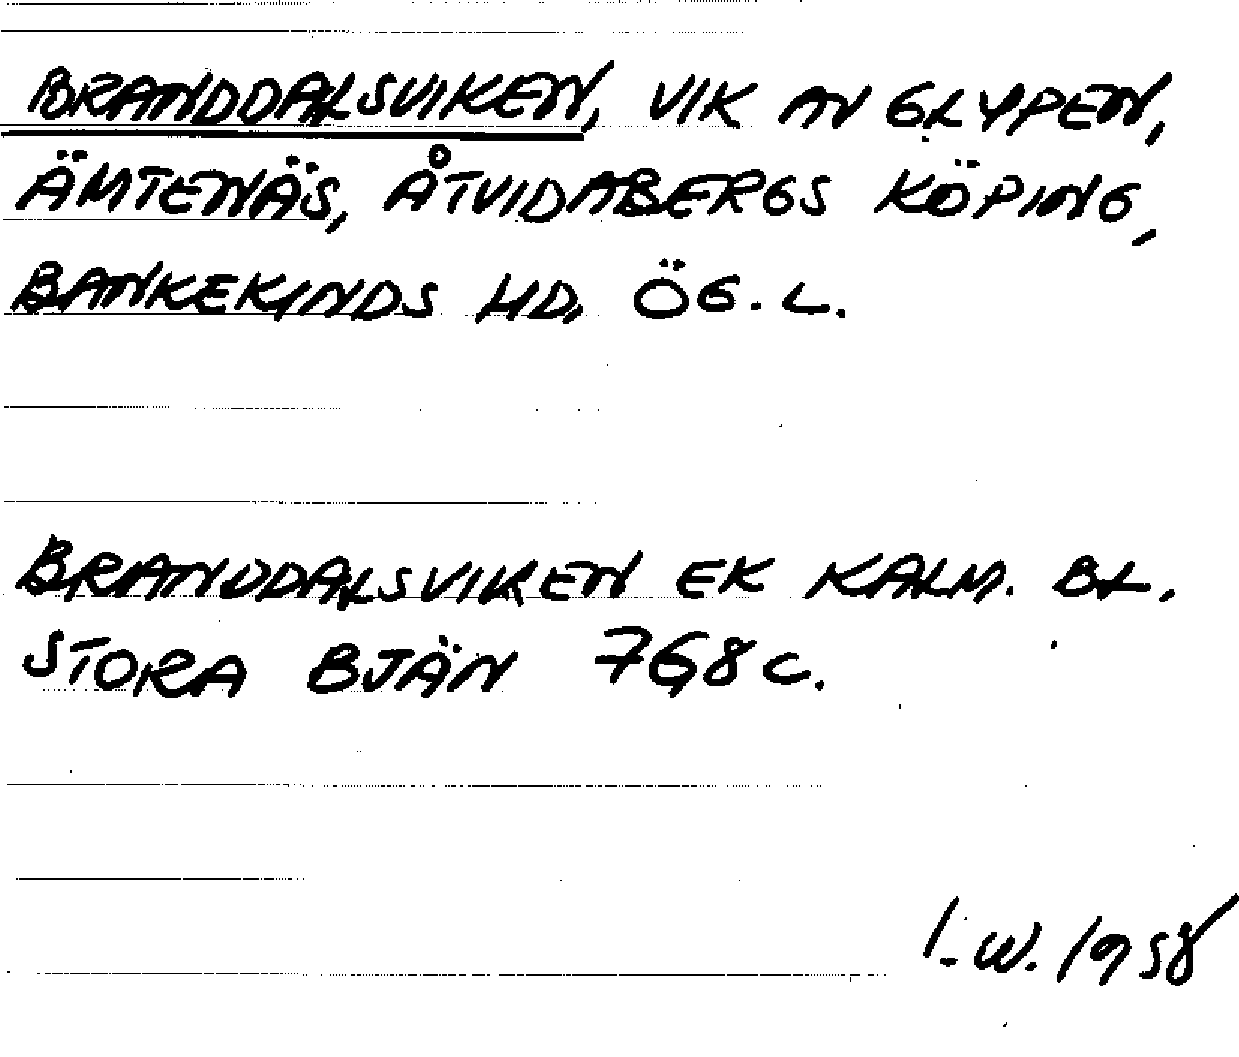 BRANDDALSVIKEN, VIK AV GLYPEN,
ÄMTENÄS, ÅTVIDABERGS KÖPING,
BANKEKINDS HD, ÖG. L.
BRANDDALSVIKEN EK KALM. BL.
STORA BJÄN 768 C.
I.W. 1958